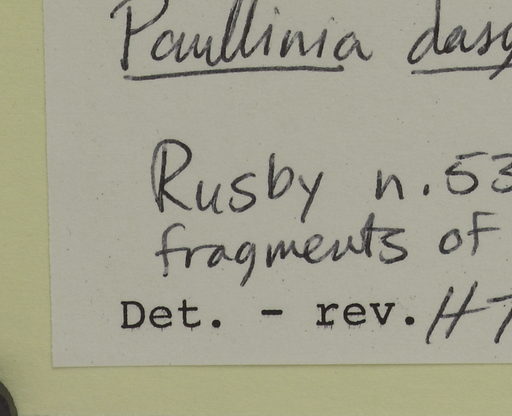 Paullinia dasy
Rusby n. 53
fragments of
Det. - rev. HT